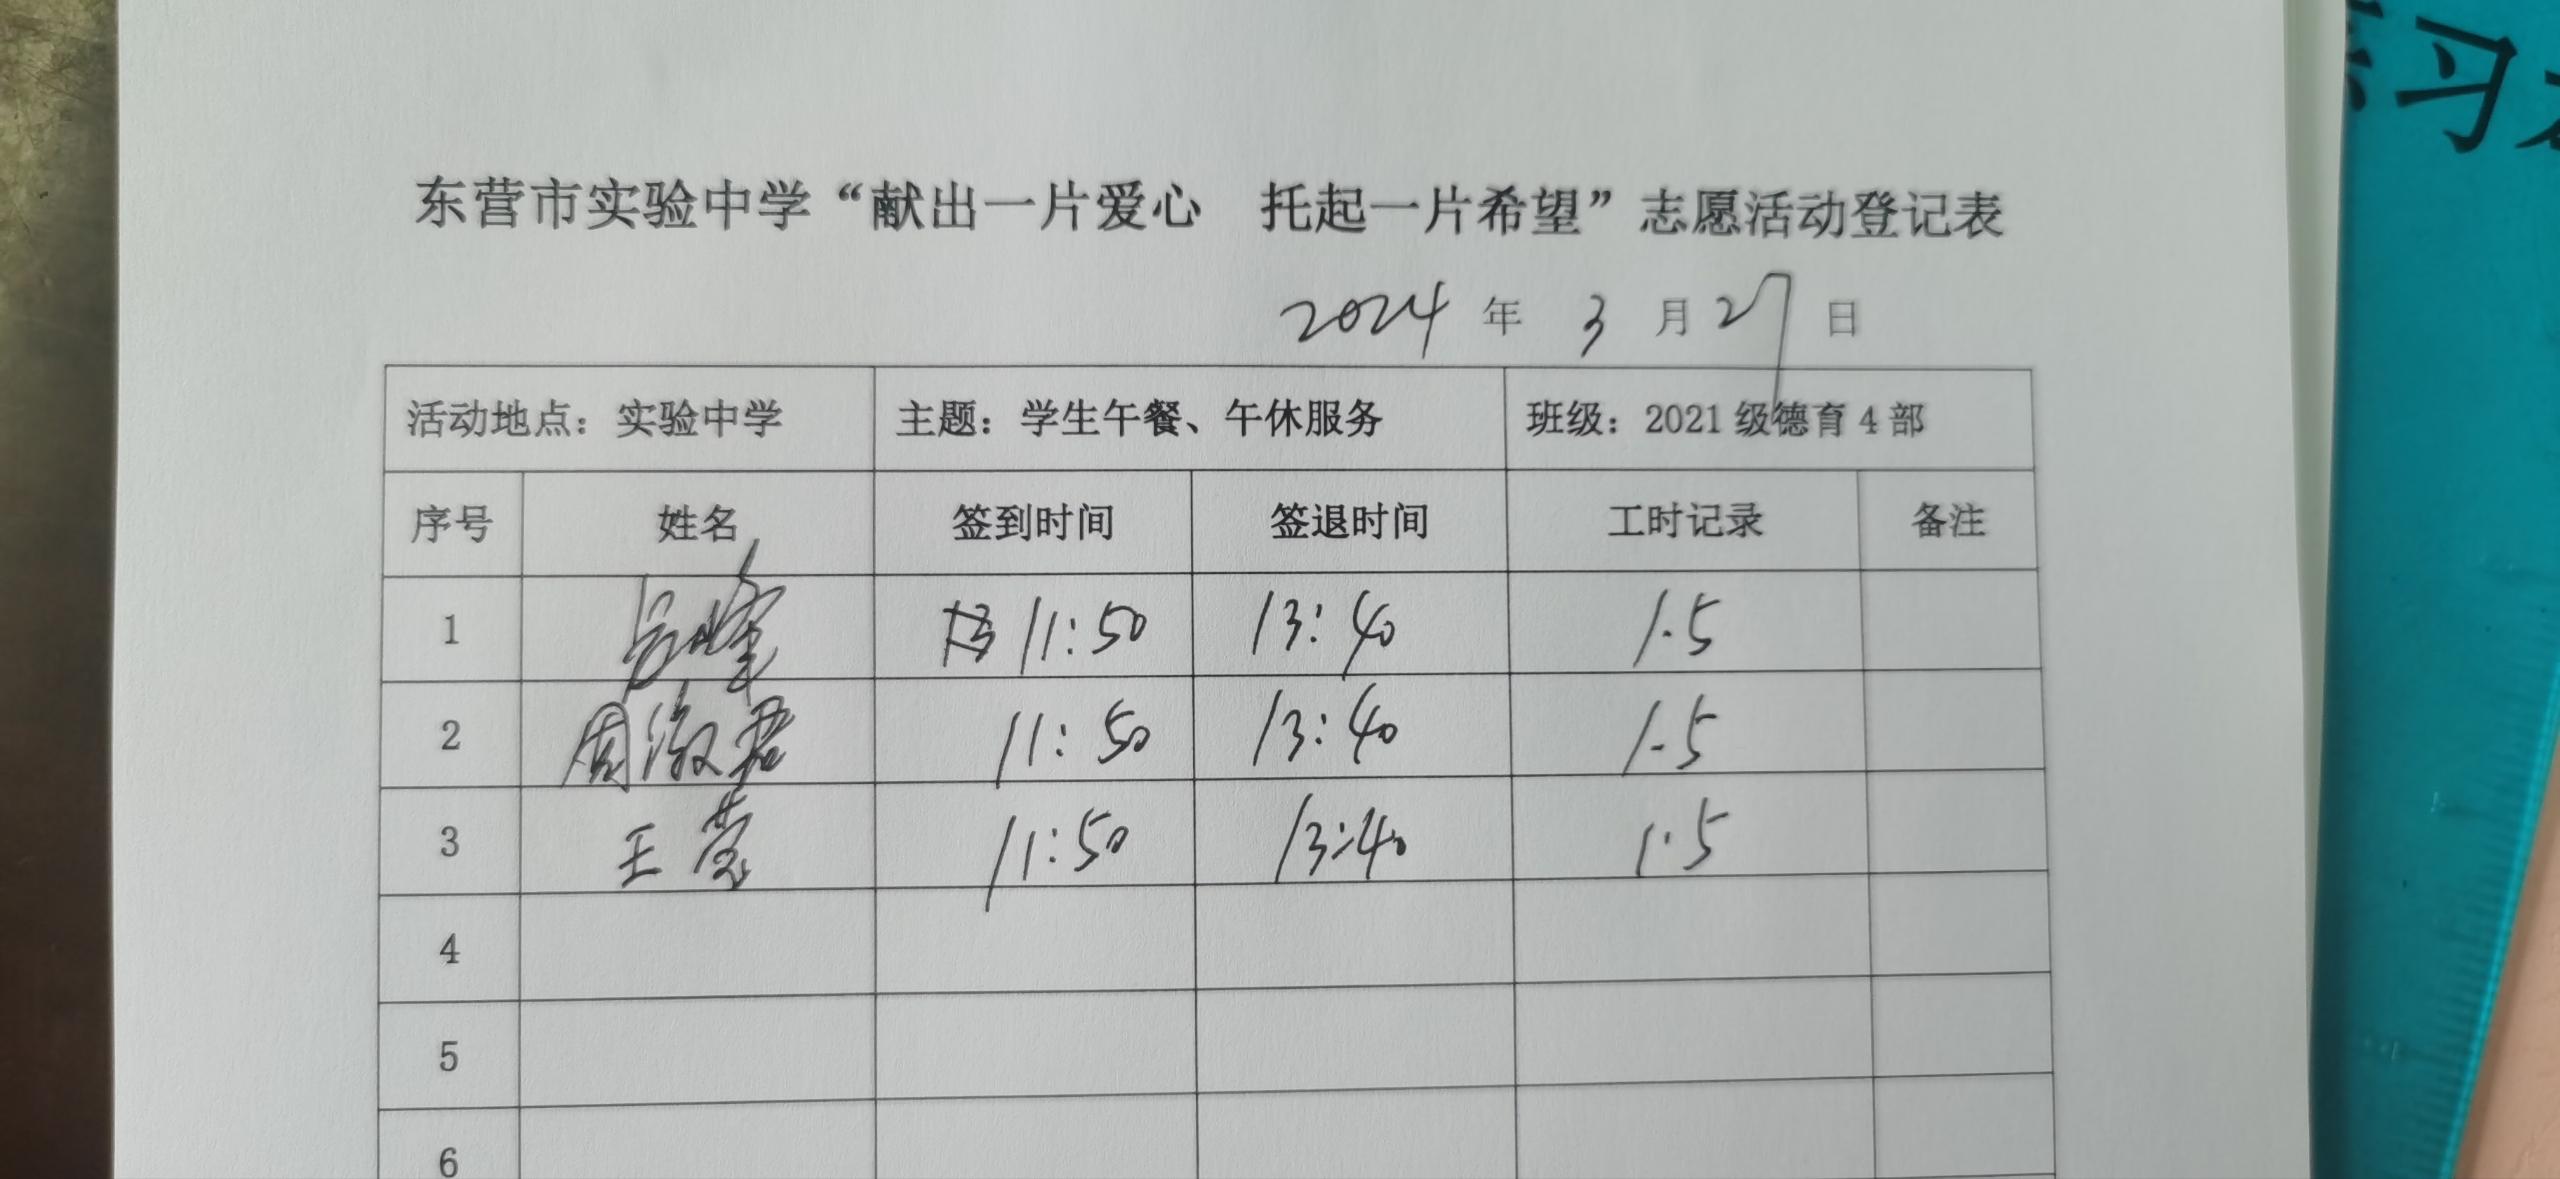 习
东营市实验中学“献出一片爱心 托起一片希望”志愿活动登记表
2024 年 3 月 27 日
活动地点：实验中学 主题：学生午餐、午休服务 班级：2021级德育4部
序号 姓名 签到时间 签退时间 工时记录 备注
1 11:50 13:40 1.5
2 周 君 11:50 13:40 1.5
3 王莹 11:50 13:40 1.5
4
5
6